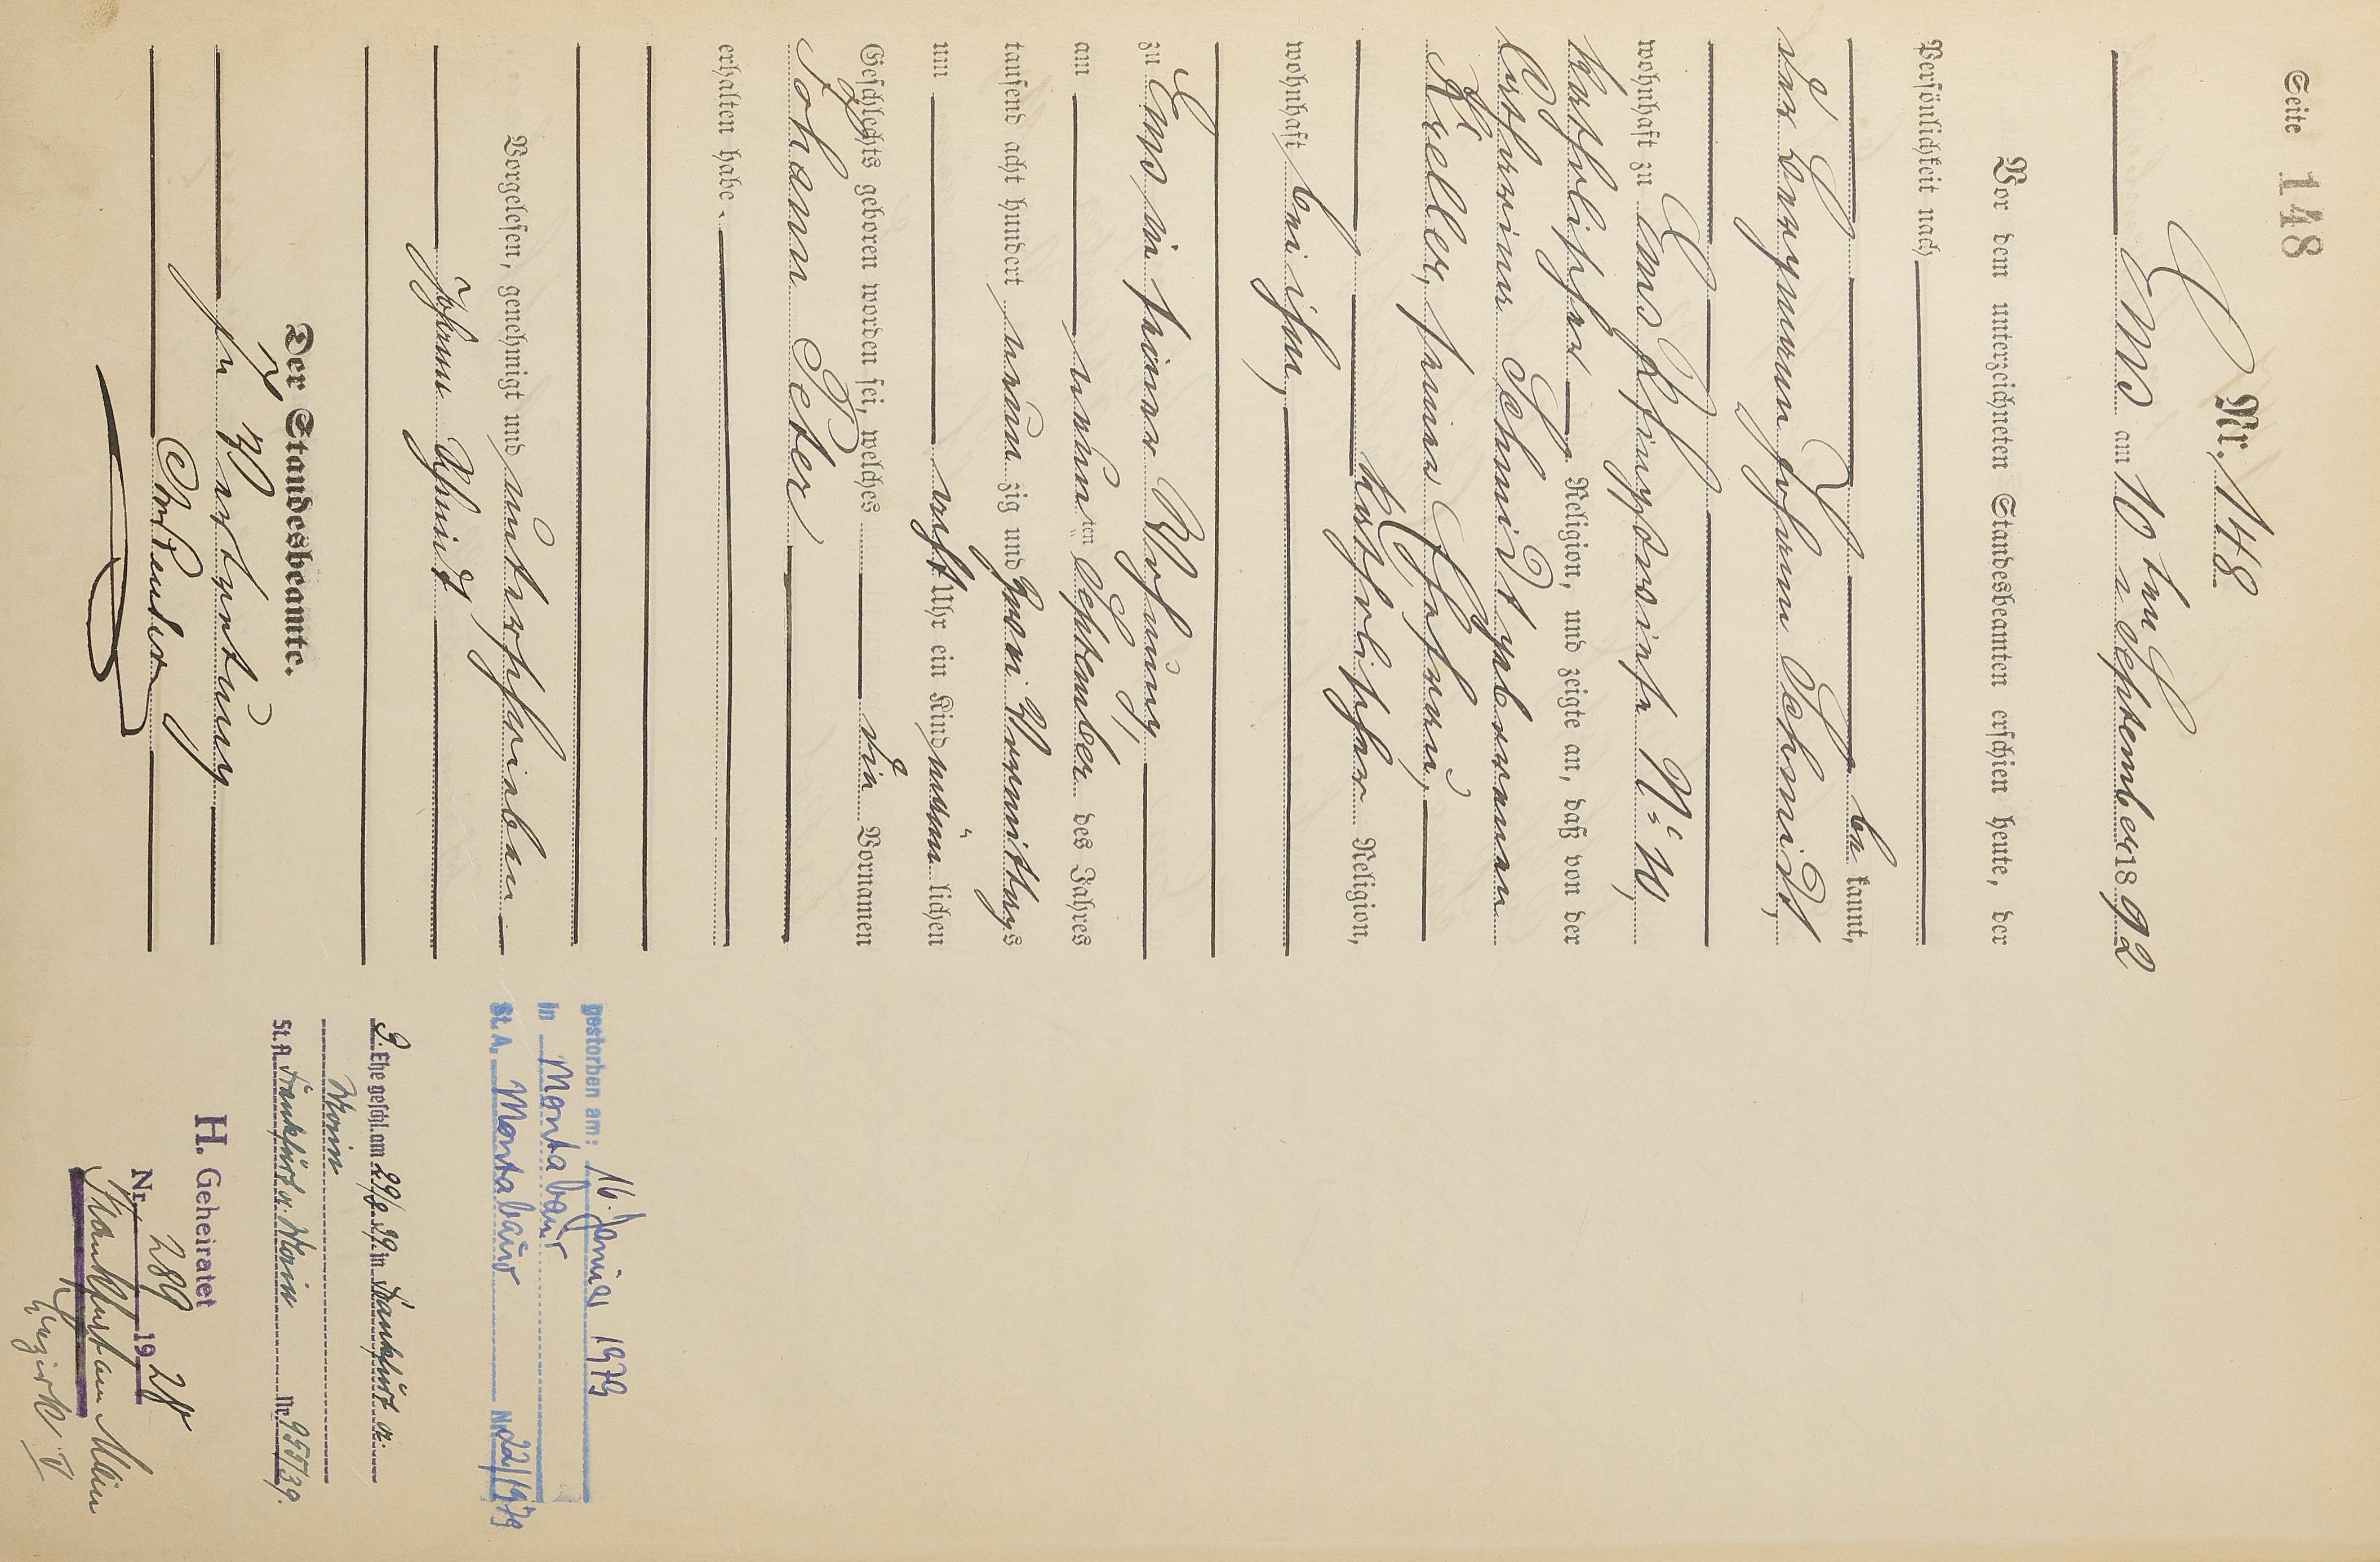 Seite 148
Nr. 148
Ems am 10ten September 1892
Vor dem unterzeichneten Standesbeamten erschien heute, der
Persönlichkeit nach
be kannt,
der Bergmann Johann Schmidt,
wohnhaft zu Ems No 10,
katholischer Religion, und zeigte an, daß von der
Catharina Schmidt geborenen
Kreller, seiner Ehefrau,
katholischer Religion,
wohnhaft bei ihm,
zu Ems in seiner Wohnung
am neunten September des Jahres
tausend acht hundert neunzig und zwei Vormittags
um acht Uhr ein Kind männlichen
Geschlechts geboren worden sei, welches die Vornamen
Johann Peter
erhalten habe.
Vorgelesen, genehmigt und unterschrieben
Johann Schmidt
Der Standesbeamte.
In Vertretung
gestorben am: 16. Januar 1979
in Montabaur
St.A. Montabaur Nr. 22/1979
2. Ehe geschl. am 29/8.39. in Frankfurt a.
Main
St.A. Frankfurt a. Main Nr. 955/39.
H. Geheiratet
Nr. 289 1928
Frankfurt am Main
Bezirk V